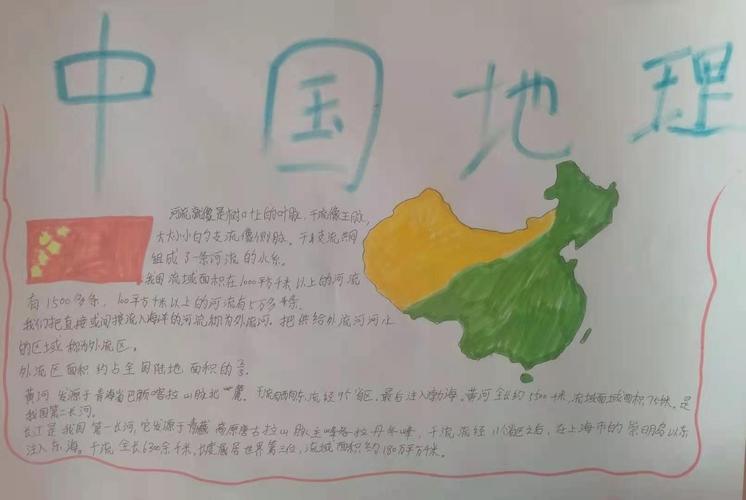 中国地理
河流就像是树叶上的叶脉,干流像主脉,
大大小小的支流像侧脉。干支流共同
组成了一条河流的水系。
我国流域面积在1000平方千米以上的河流
有1500多条,100平方千米以上的河流有5万多条。
我们把直接或间接流入海洋的河流称为外流河。把供给外流河河水
的区域称为外流区。
外流区面积约占全国陆地面积的2/3。
黄河发源于青海省巴颜喀拉山脉北麓。干流流经9个省区,最后注入渤海。黄河全长约5500千米,流域面积75万 是
我国第二长河。
长江是我国第一长河,它发源于青藏高原唐古拉山脉主峰各拉丹冬峰,干流流经11个省区之后,在上海市的崇明岛以东
注入东海。干流全长6300余千米,长度居世界第三位,流域面积约180万平方千米。